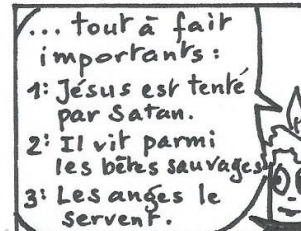 ... tout à fait
importants :
1: Jésus est tenté
par Satan.
2: Il vit parmi
les bêtes sauvages
3: Les anges le
servent.